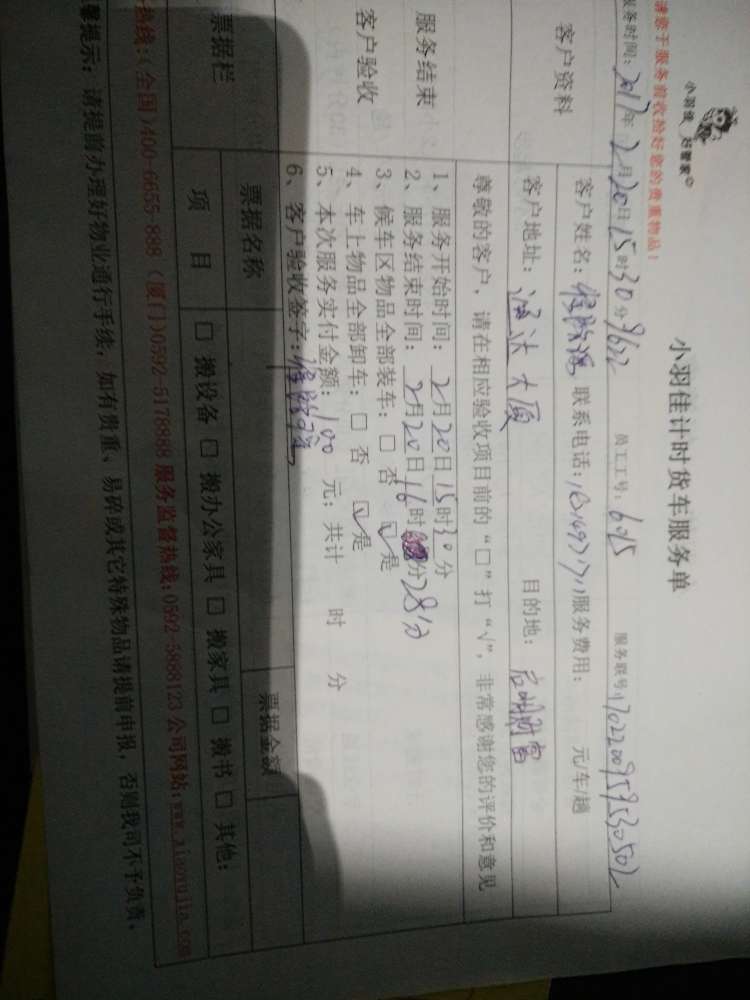 小羽佳 好管家
小羽佳计时货车服务单
请您于服务前收拾好您的贵重物品！
服务时间：2017年2月20日15时30分 9622 员工工号：6015 服务联号：
客户资料
客户姓名： 联系电话： 服务费用： 元/车/趟
客户地址： 大厦 目的地： 财富
尊敬的客户，请在相应验收项目前的“□”打“√”，非常感谢您的评价和意见
服务结束
客户验收
1、服务开始时间：2月20日15时30分
2、服务结束时间：2月20日16时 分28分
3、候车区物品全部装车：□ 否 ☑ 是
4、车上物品全部卸车：□ 否 ☑ 是
5、本次服务实付金额：100元；共计 时 分
6、客户验收签字：
票据栏
票据名称 票据金额
项 目 □ 搬设备 □ 搬办公家具 □ 搬家具 □ 搬书 □ 其他：
热线：(全国)400-6655-888 (厦门)0592-5178888 服务监督热线：0592-5888123 公司网站：www.xiaoyujia.com
馨提示：请提前办理好物业通行手续，如有贵重、易碎或其它特殊物品请提前申报，否则我司不予负责。